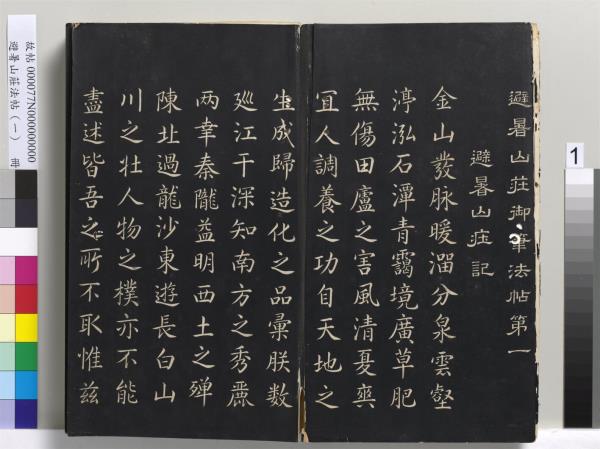 避暑山莊御筆法帖第一
避暑山莊記
金山發脉暖溜分泉雲壑
渟泓石潭青靄境廣草肥
無傷田廬之害風清夏爽
宜人調養之功自天地之
生成歸造化之品彙朕數
廵江干深知南方之秀麗
兩幸秦隴益明西土之殫
陳北過龍沙東遊長白山
川之壯人物之樸亦不能
盡述皆吾之所不取惟茲
故帖 000077N000000000
避暑山莊法帖(一)
1